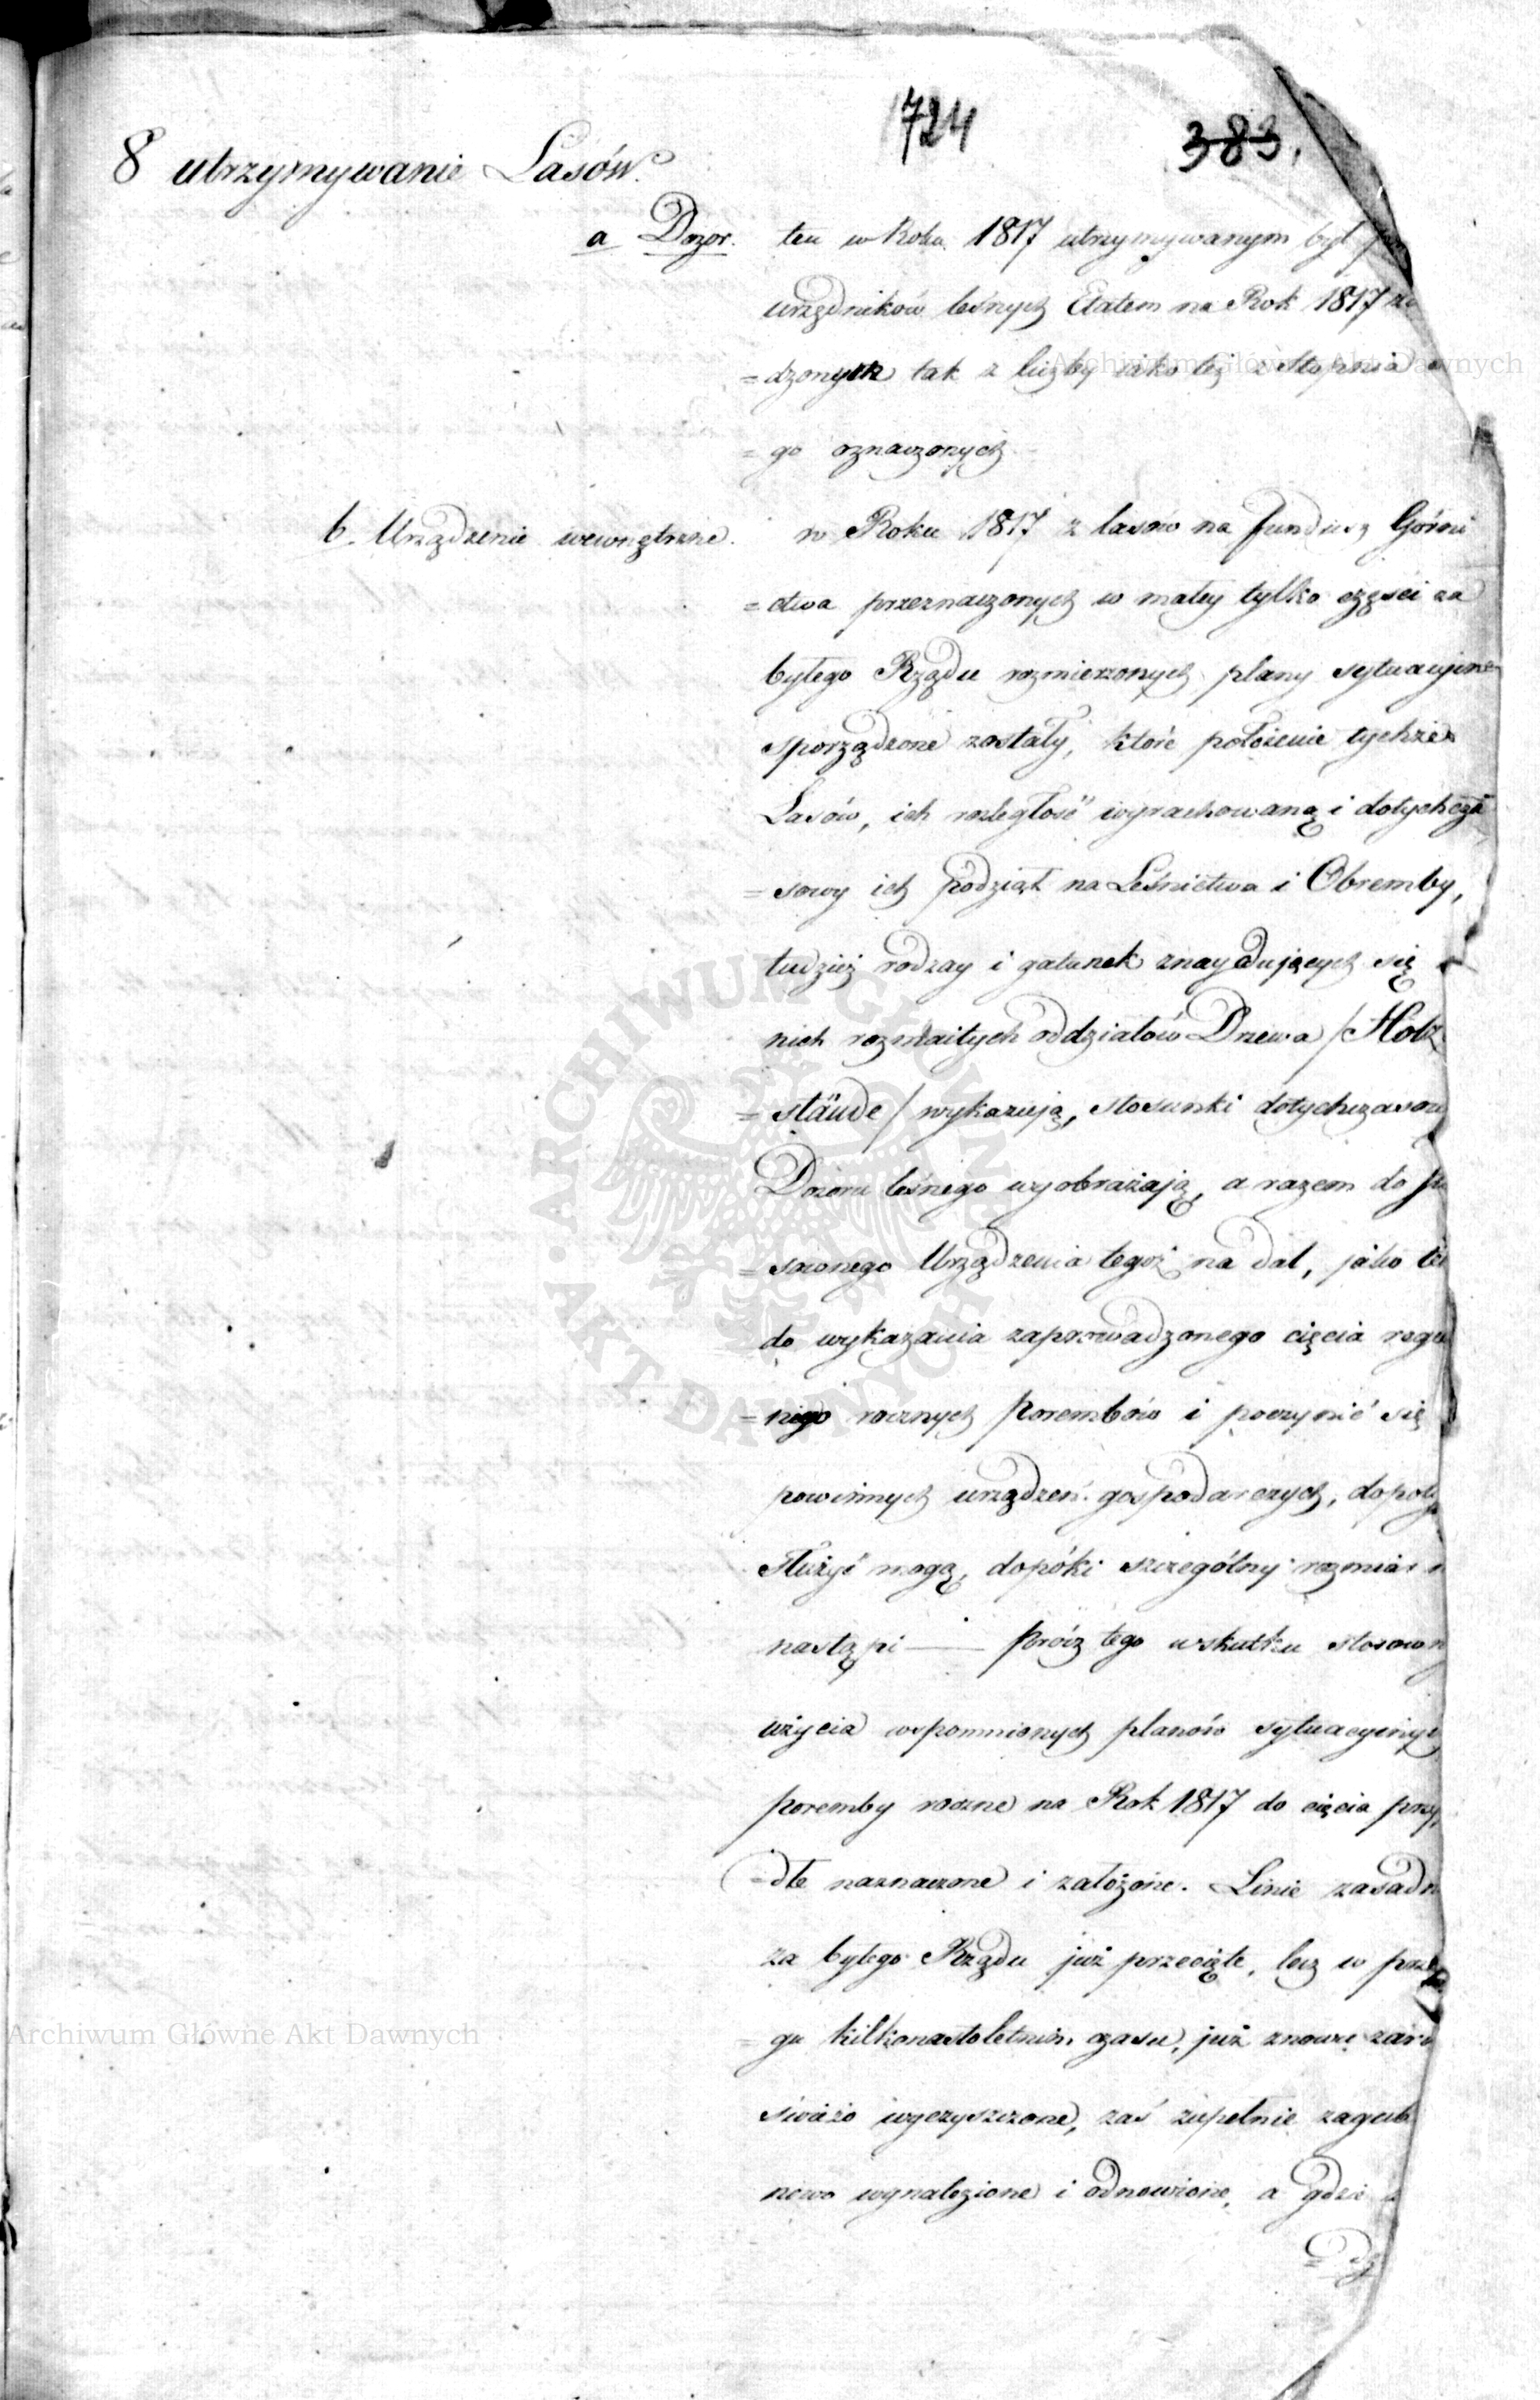 724
383.
8 utrzymywanie Lasów.
a Dozor. ten w Roku 1817 utrzymywanym był
urzędników leśnych Etatem na Rok 1817
=dzonych tak z liczby iako też z Stopnia
=go oznaczonych
b. Urządzenie wewnętrzne. w Roku 1817 z lasów na fundusz Górni
=ctwa przeznaczonych w małey tylko częsci za
byłego Rządu rozmierzonych plany sytuacyine
sporządzone zostały, które położenie tychże
Lasów, ich rozległość wyrachowaną i dotychcza
=sowy ich podział na Leśnictwa i Obremby,
tudzież rodzay i gatunek znaydujących się
nich rozmaitych oddziałów Drzewa /Holz
=stäude/ wykazują, stosunki dotychczasow
Dozoru leśnego wyobrażają, a razem do
=sownego Urządzenia tegoż na dal, jako też
do wykazania zaprowadzonego cięcia regu
=nego rocznych Porembów i poczynić się
powinnych urządzeń gospodarczych, dopoty
służyć mogą, dopóki szczególny rozmiar
nastąpi — Prócz tego wskutku stosown
użycia wspomnionych planów sytuacyinych
Poremby roczne na Rok 1817 do cięcia przy
=dłe naznaczone i założone. Linie zasadn
za byłego Rządu już przecięte, lecz w prze
=gu kilkonastoletnim czasu, już znowu zaro
świéżo wyczyszczone, zaś zupełnie zagub
nowo wynalezione i odnowione, a gdzie
Archiwum Główne Akt Dawnych
Archiwum Główne Akt Dawnych
ARCHIWUM GŁÓWNE AKT DAWNYCH